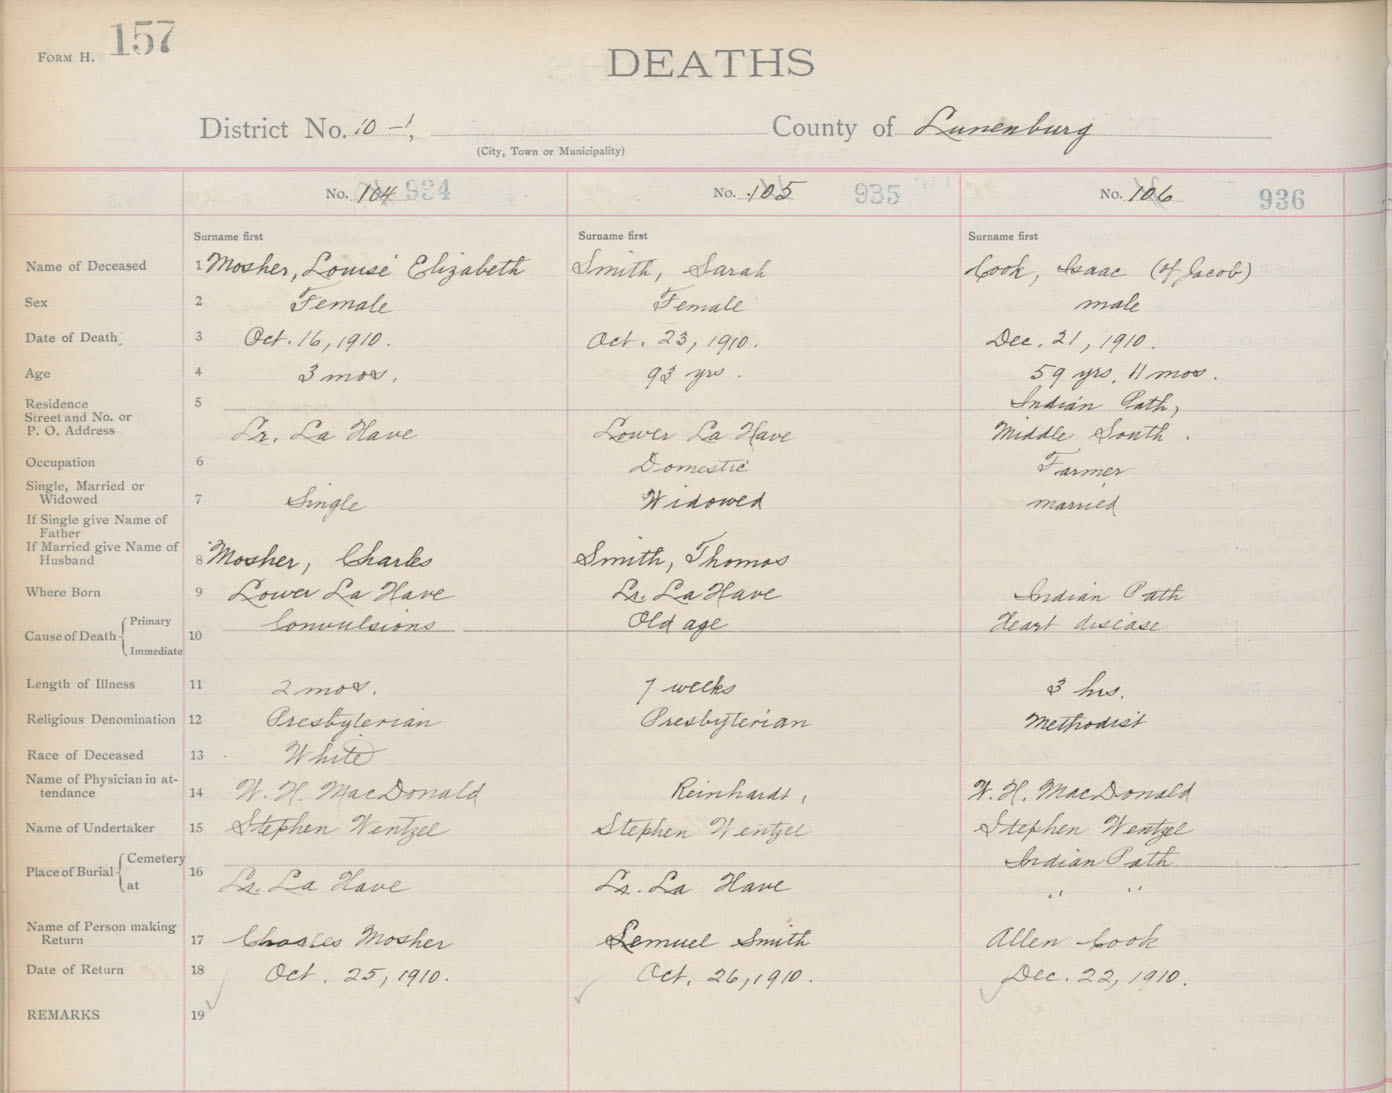 FORM H. 157
DEATHS
District No. 10-1, County of Lunenburg
(City, Town or Municipality)
No. 104 934 No. 105 935 No. 106 936
Surname first Surname first Surname first
Name of Deceased 1 Mosher, Louise Elizabeth Smith, Sarah Cook, Isaac (of Jacob)
Sex 2 Female Female male
Date of Death 3 Oct. 16, 1910. Oct. 23, 1910. Dec. 21, 1910.
Age 4 3 mos. 93 yrs. 59 yrs. 11 mos.
Residence 5 Indian Path,
Street and No. or
P. O. Address Lr. La Have Lower La Have Middle South.
Occupation 6 Domestic Farmer
Single, Married or
Widowed 7 Single Widowed married
If Single give Name of
Father
If Married give Name of
Husband 8 Mosher, Charles Smith, Thomas
Where Born 9 Lower La Have Lr. La Have Indian Path
Cause of Death Primary 10 Convulsions Old age Heart disease
Immediate
Length of Illness 11 2 mos. 7 weeks 3 hrs.
Religious Denomination 12 Presbyterian Presbyterian Methodist
Race of Deceased 13 White
Name of Physician in at-
tendance 14 W. H. MacDonald Reinhardt, W. H. MacDonald
Name of Undertaker 15 Stephen Wentzel Stephen Wentzel Stephen Wentzel
Place of Burial Cemetery 16 Indian Path
at Lr. La Have Lr. La Have " "
Name of Person making
Return 17 Charles Mosher Lemuel Smith Allen Cook
Date of Return 18 Oct. 25, 1910. Oct. 26, 1910. Dec. 22, 1910.
REMARKS 19